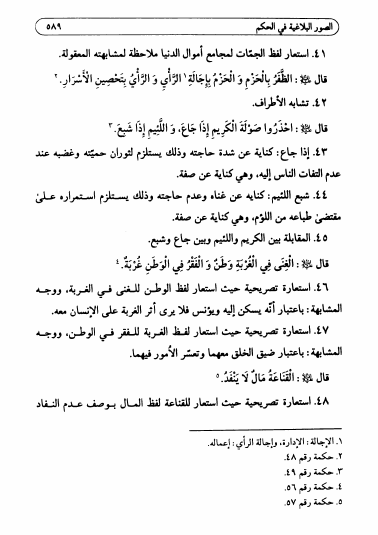 الصور البلاغية في الحكم ٥٨٩
٤١. استعار لفظ الجمّات لمجامع أموال الدنيا ملاحظة لمشابهته المعقولة.
قال ﷺ: الظَّفَرُ بِالْحَزْمِ وَ الْحَزْمُ بِإِجَالَةِ ١ الرَّأْيِ وَ الرَّأْيُ بِتَحْصِينِ الْأَسْرَارِ. ٢
٤٢. تشابه الأطراف.
قال ﷺ: احْذَرُوا صَوْلَةَ الْكَرِيمِ إِذَا جَاعَ، وَ اللَّئِيمِ إِذَا شَبِعَ. ٣
٤٣. إذا جاع: كناية عن شدة حاجته وذلك يستلزم لثوران حميّته وغضبه عند
عدم التفات الناس إليه، وهي كناية عن صفة.
٤٤. شبع اللئيم: كنايه عن غناه وعدم حاجته وذلك يستلزم استمراره على
مقتضىٰ طباعه من اللؤم، وهي كناية عن صفة.
٤٥. المقابلة بين الكريم واللئيم وبين جاع وشبع.
قال ﷺ: الْغِنَى فِي الْغُرْبَةِ وَطَنٌ وَ الْفَقْرُ فِي الْوَطَنِ غُرْبَةٌ. ٤
٤٦. استعارة تصريحية حيث استعار لفظ الوطن للغنى في الغربة، ووجه
المشابهة: باعتبار أنّه يسكن إليه ويؤنس فلا يرى أثر الغربة على الإنسان معه.
٤٧. استعارة تصريحية حيث استعار لفظ الغربة للفقر في الوطن، ووجه
المشابهة: باعتبار ضيق الخلق معهما وتعسّر الأمور فيهما.
قال ﷺ: الْقَنَاعَةُ مَالٌ لَا يَنْفَدُ. ٥
٤٨. استعارة تصريحية حيث استعار للقناعة لفظ المال بوصف عدم النفاد
١. الإجالة: الإدارة، وإجالة الرأي: إعماله.
٢. حكمة رقم ٤٨.
٣. حكمة رقم ٤٩.
٤. حكمة رقم ٥٦.
٥. حكمة رقم ٥٧.